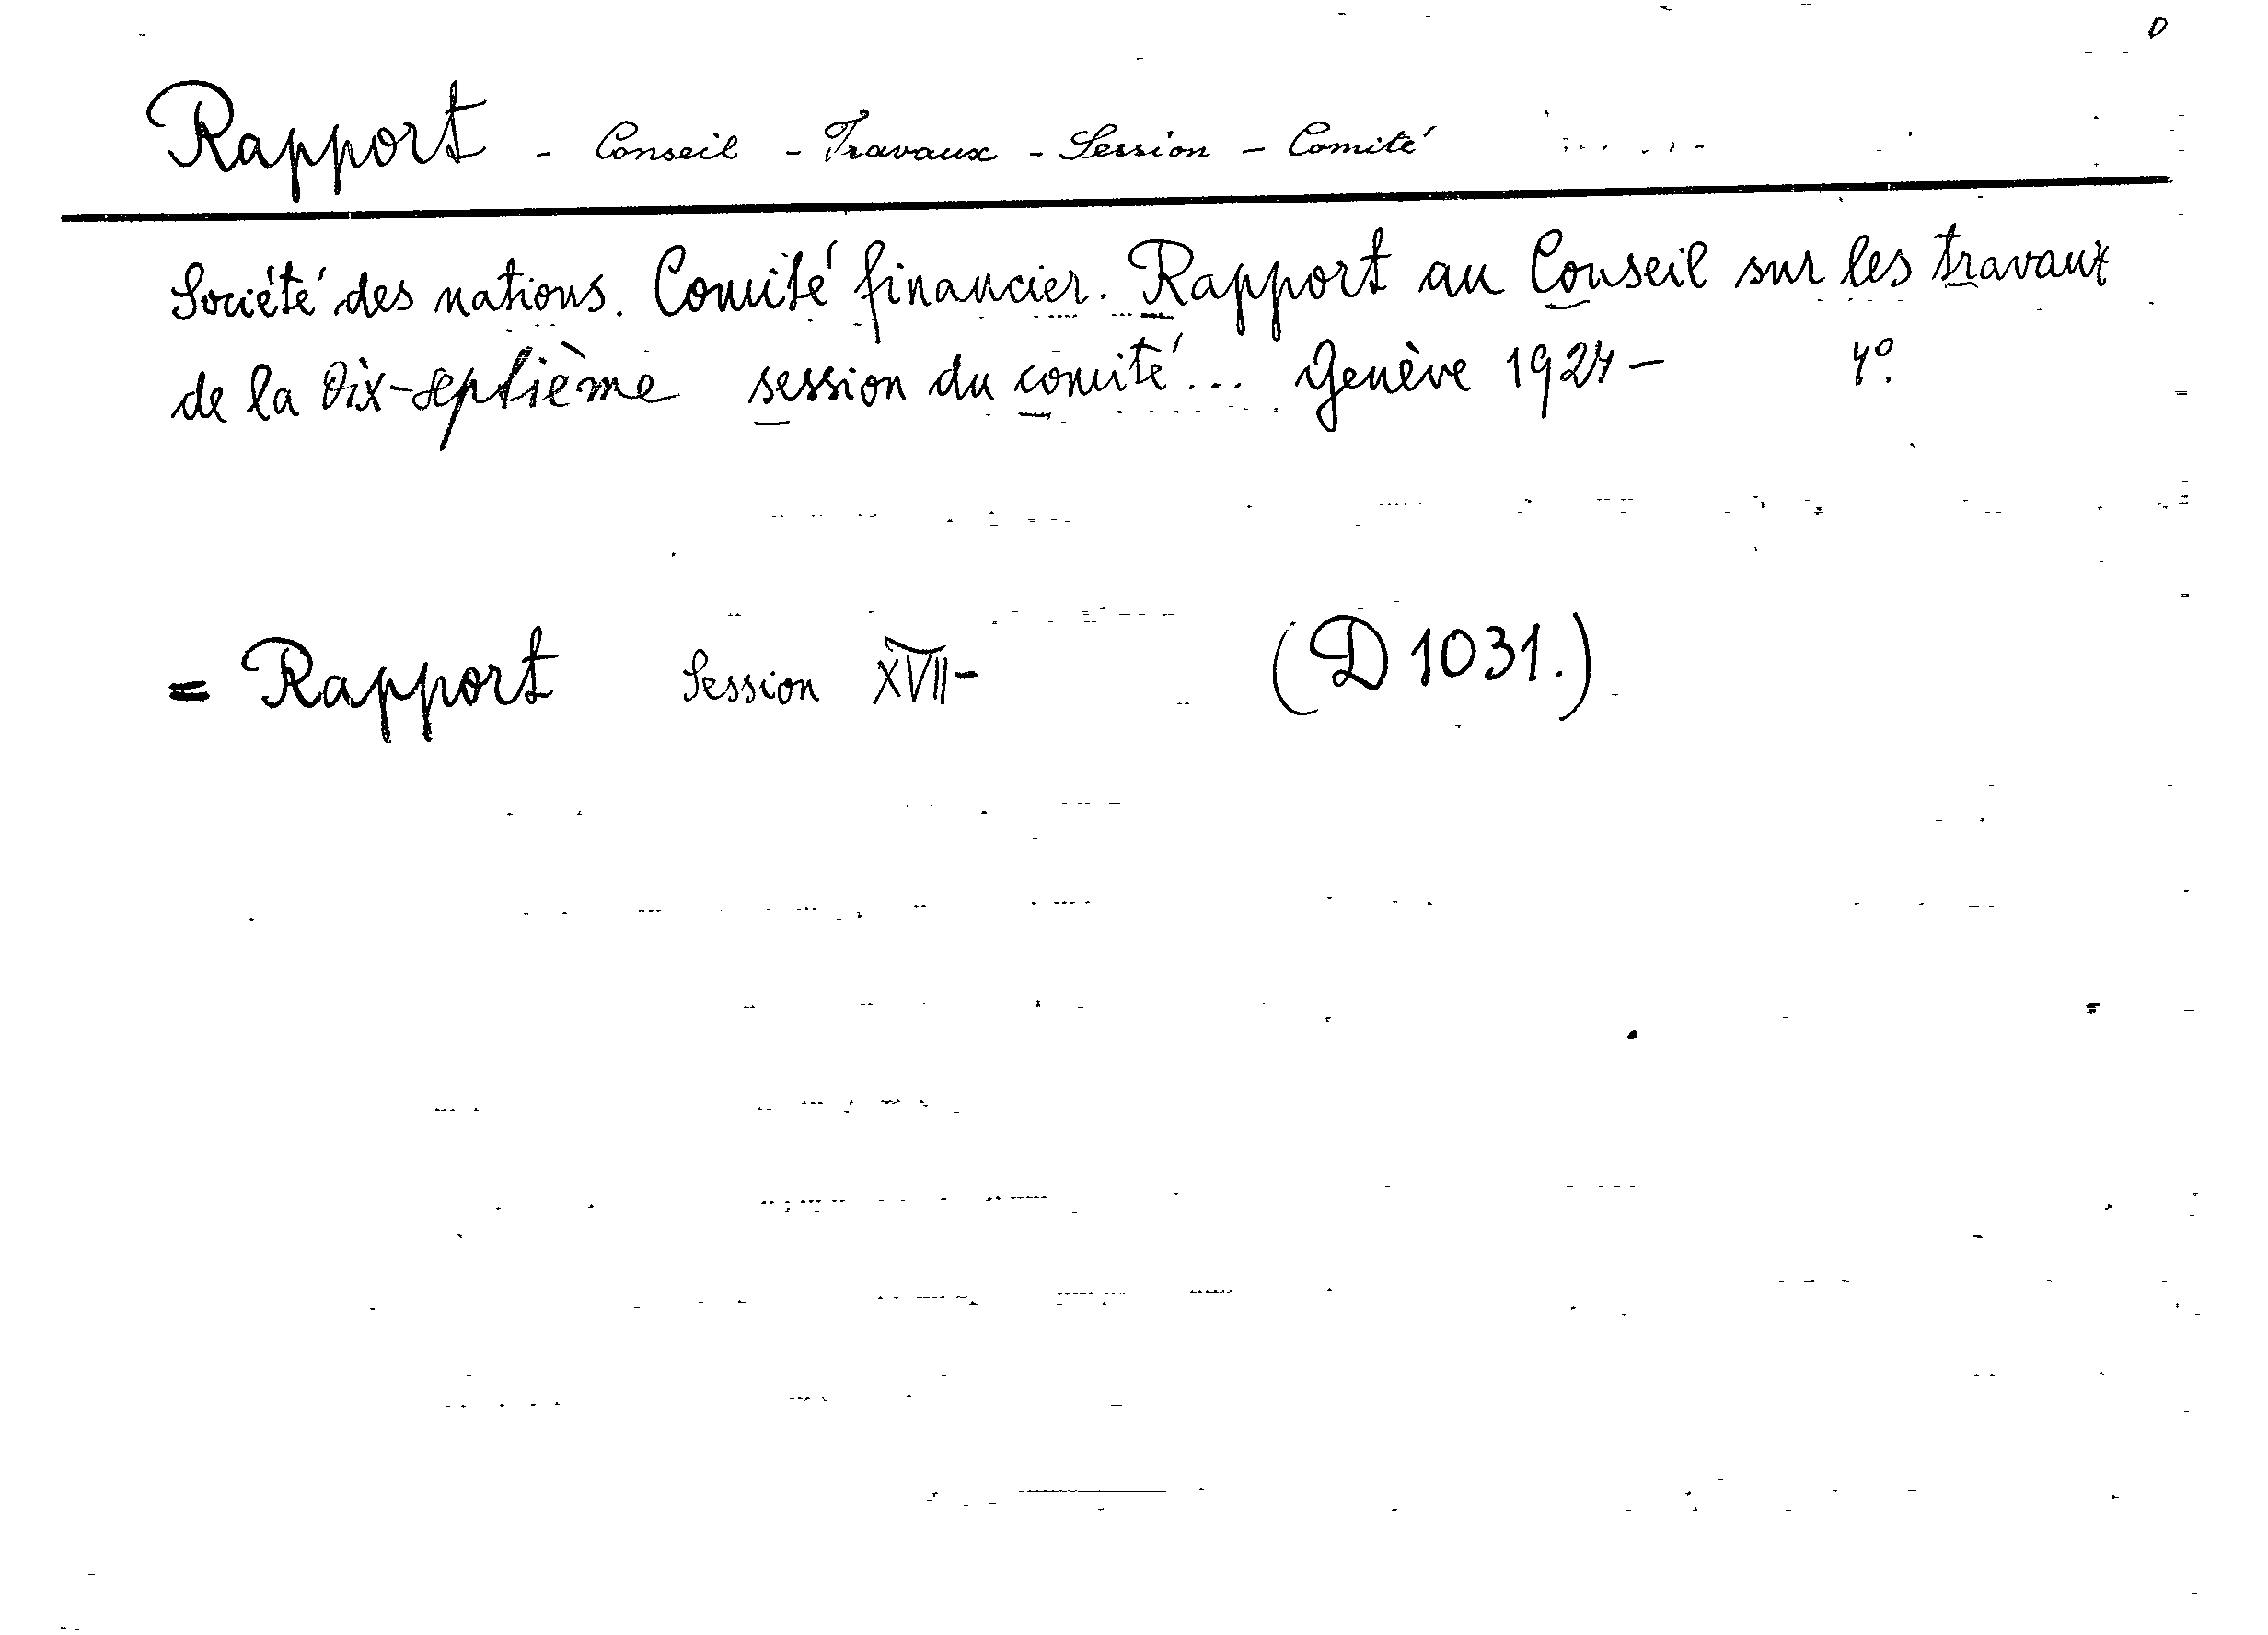 D
Rapport - Conseil - Travaux - Session - Comité
Société des nations. Comité financier. Rapport au Conseil sur les travaux
de la Dix-septième session du comité... Genève 1924 - 4°.
= Rapport Session XVII- (D 1031.)